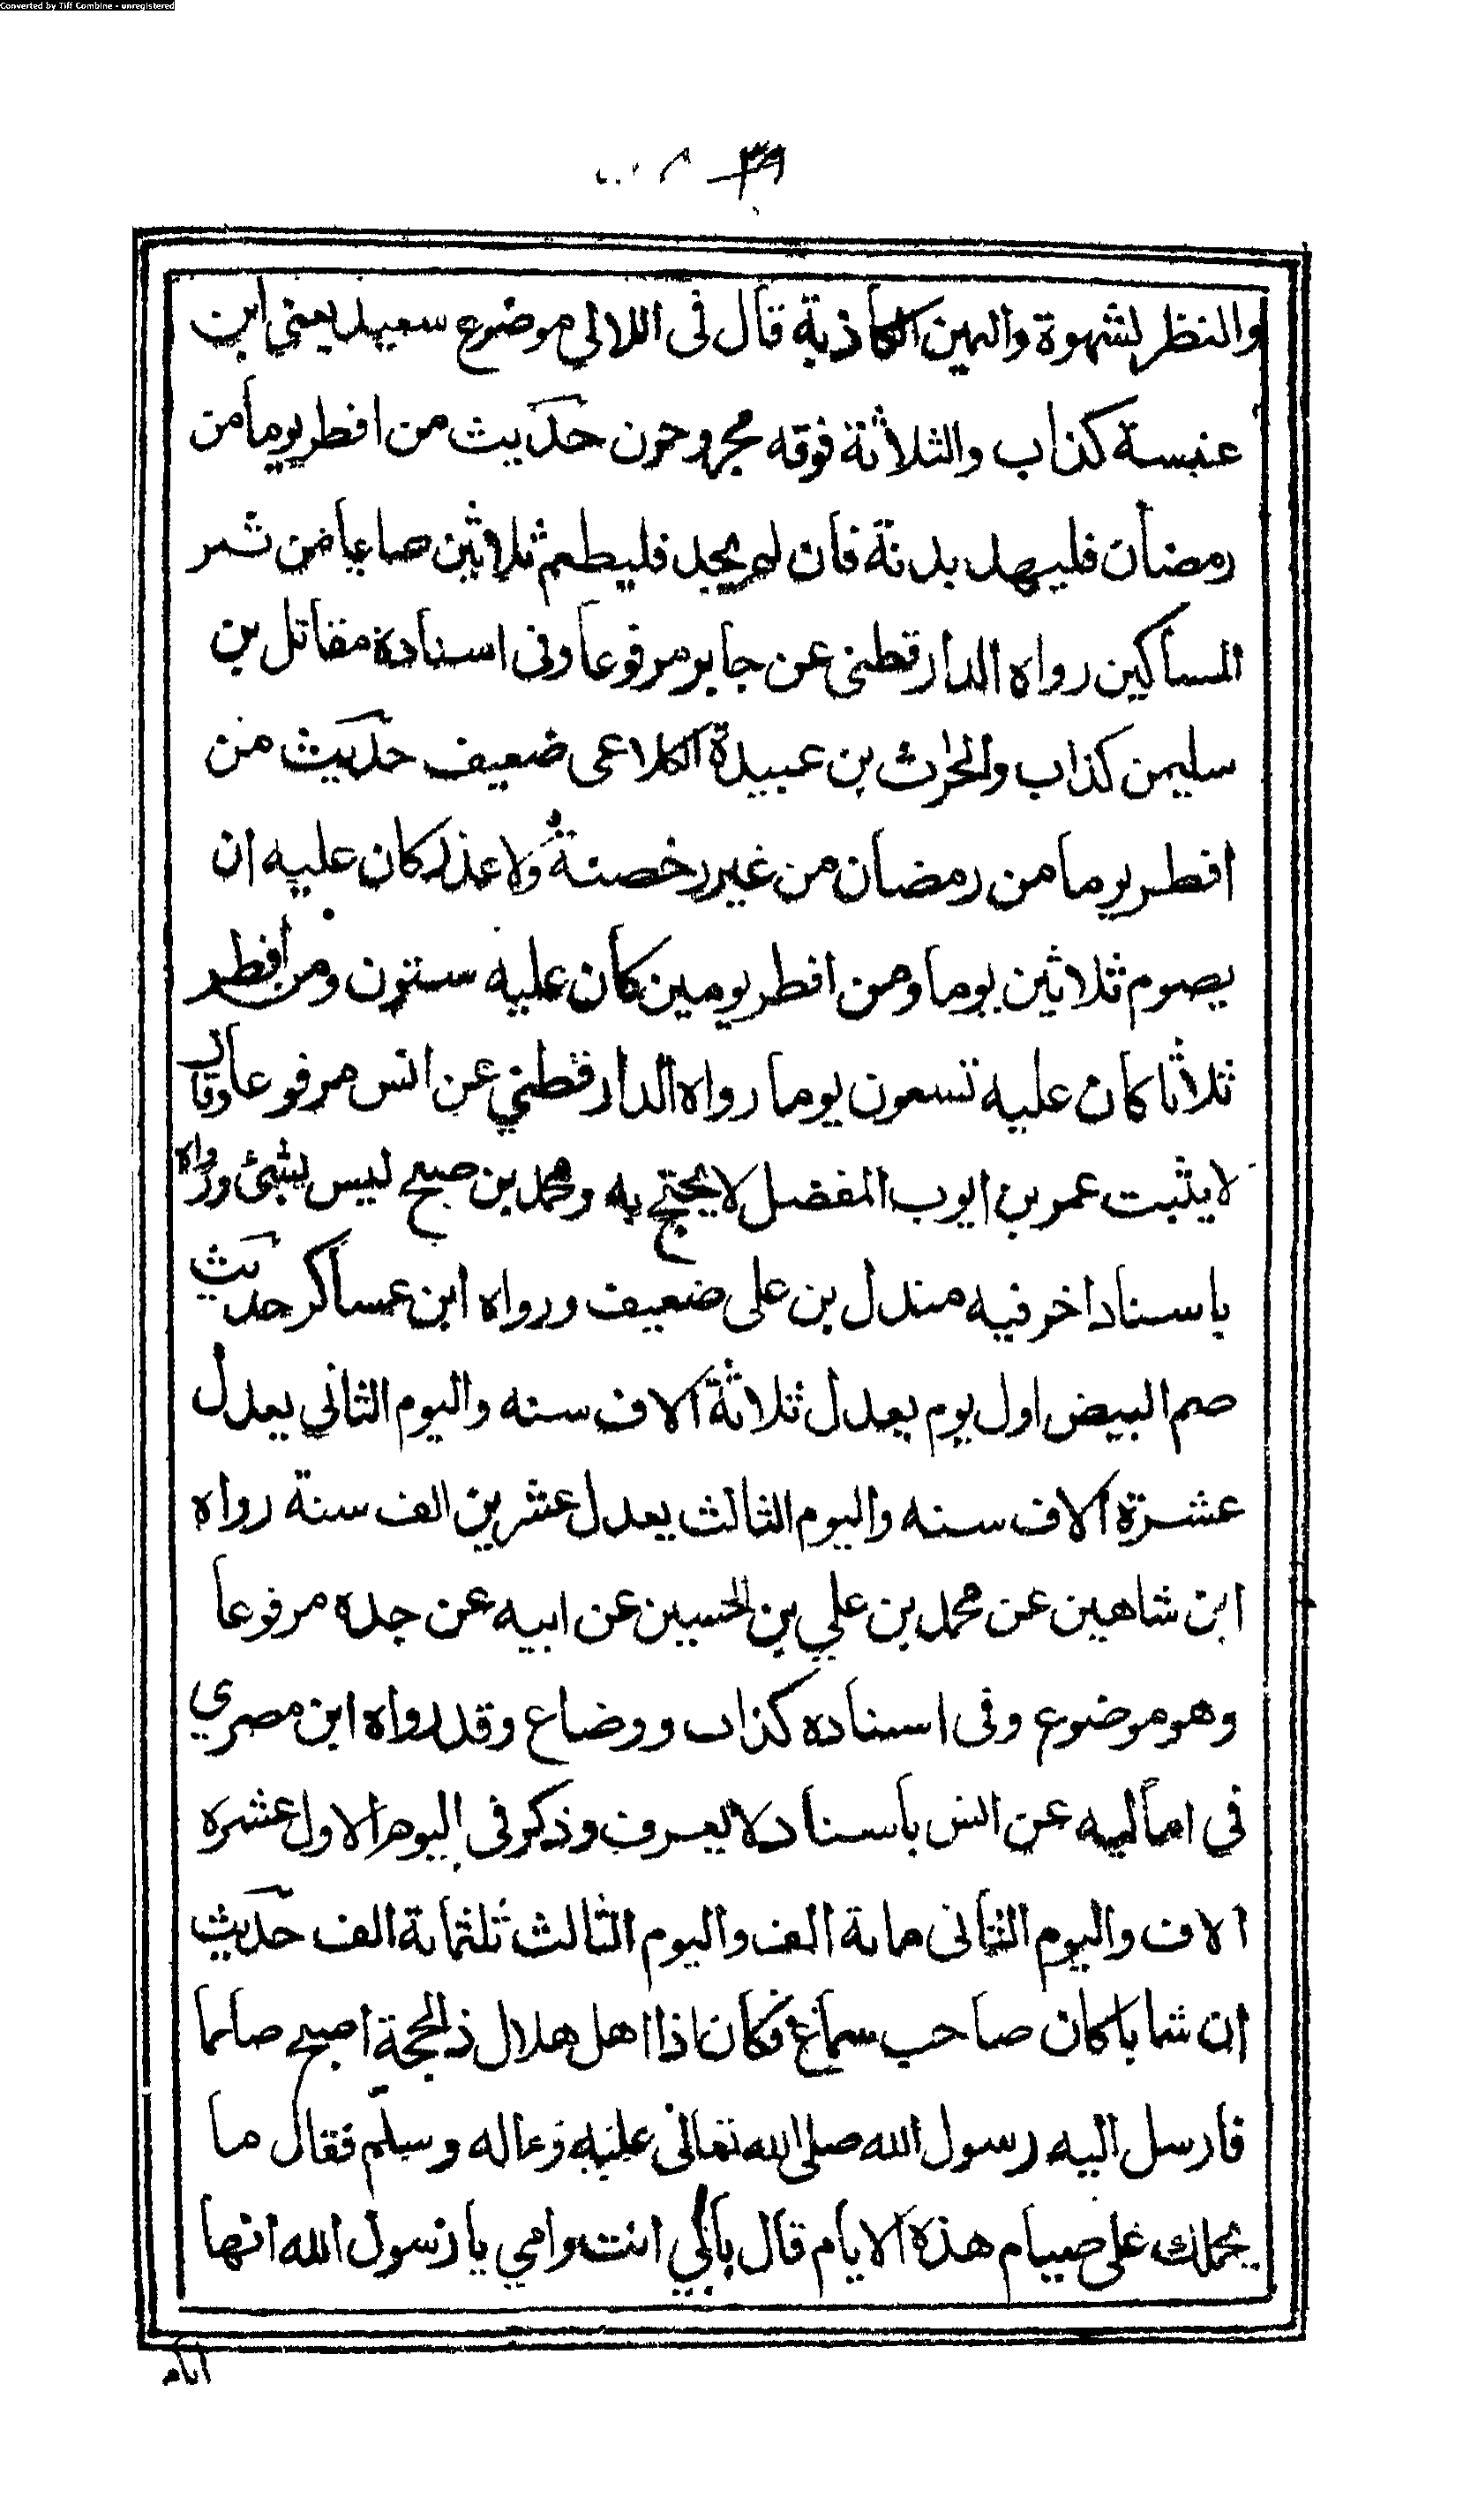 Converted by Tiff Combine - unregistered
٣٩
والنظر لشهوة واليمين الكاذبة قال فى اللالي موضوع سعيد يعني ابن
عنبسة كذاب والثلاثة فوقه مجروحون حديث من افطر يوما من
رمضان فليهد بدنة فان لم يجد فليطعم ثلاثين صاعا من تمر
المساكين رواه الدارقطنى عن جابر مرفوعا وفى اسناده مقاتل بن
سليمن كذاب والحرث بن عبيدة الكلاعى ضعيف حديث من
افطر يوما من رمضان من غير رخصة ولا عذر كان عليه ان
يصوم ثلاثين يوما ومن افطر يومين كان عليه ستون ومن افطر
ثلاثا كان عليه تسعون يوما رواه الدارقطني عن انس مرفوعا وقال
لا يثبت عمر بن ايوب المفضل لا يحتج به ومحمد بن صبيح ليس بشئ ورواه
باسناد اخر فيه مندل بن على ضعيف ورواه ابن عساكر حديث
صم البيض اول يوم يعدل ثلاثة الاف سنه واليوم الثانى يعدل
عشرة الاف سنه واليوم الثالث يعدل عشرين الف سنة رواه
ابن شاهين عن محمد بن علي بن الحسين عن ابيه عن جده مرفوعا
وهو موضوع وفى اسناده كذاب ووضاع وقد رواه ابن مصري
فى اماليه عن انس باسناد لا يعرف وذكر فى اليوم الاول عشره
الاف واليوم الثانى مائة الف واليوم الثالث ثلثمائة الف حديث
ان شابا كان صاحب سماع فكان اذا اهل هلال ذالحجة اصبح صائما
فارسل اليه رسول الله صلى الله تعالى عليه وعاله وسلم فقال ما
يحملك على صيام هذه الايام قال بابي انت وامي يا رسول الله انها
ايام